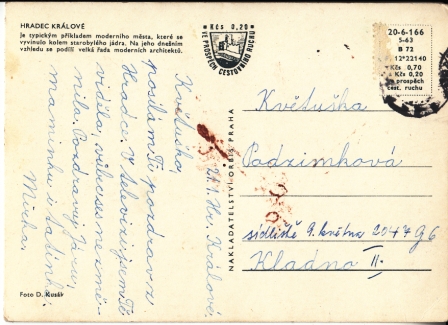 HRADEC KRÁLOVÉ
je typickým příkladem moderního města, které se
vyvinulo kolem starobylého jádra. Na jeho dnešním
vzhledu se podílí velká řada moderních architektů.
Kčs 0,20
VE PROSPĚCH CESTOVNÍHO RUCHU
20-6-166
5-63
B 72
12*22140
Kčs 0,70
+ Kčs 0,20
ve prospěch
cest. ruchu
Květuško,
posílám Ti pozdrav z
Hradce. V televizi jsem Tě
viděla, vůbec ses nezmě-
nila. Pozdravuj
maminku i tatínka
Mirka.
Hr. Králové,
NAKLADATELSTVÍ ORBIS, PRAHA
Květuška
Podzimková
sídliště 9. května 2047 96
Kladno II.
Foto D. Kusák